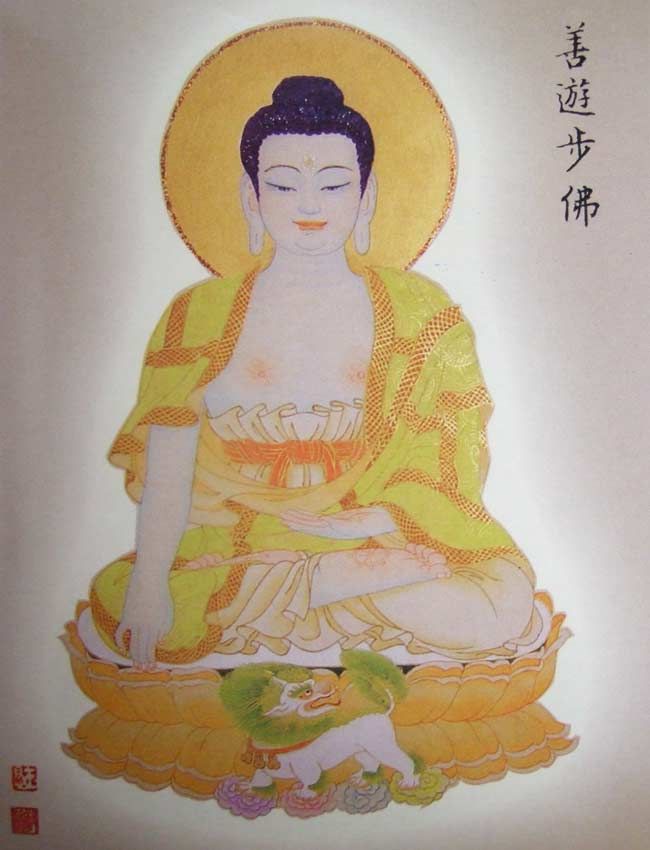 善遊步佛